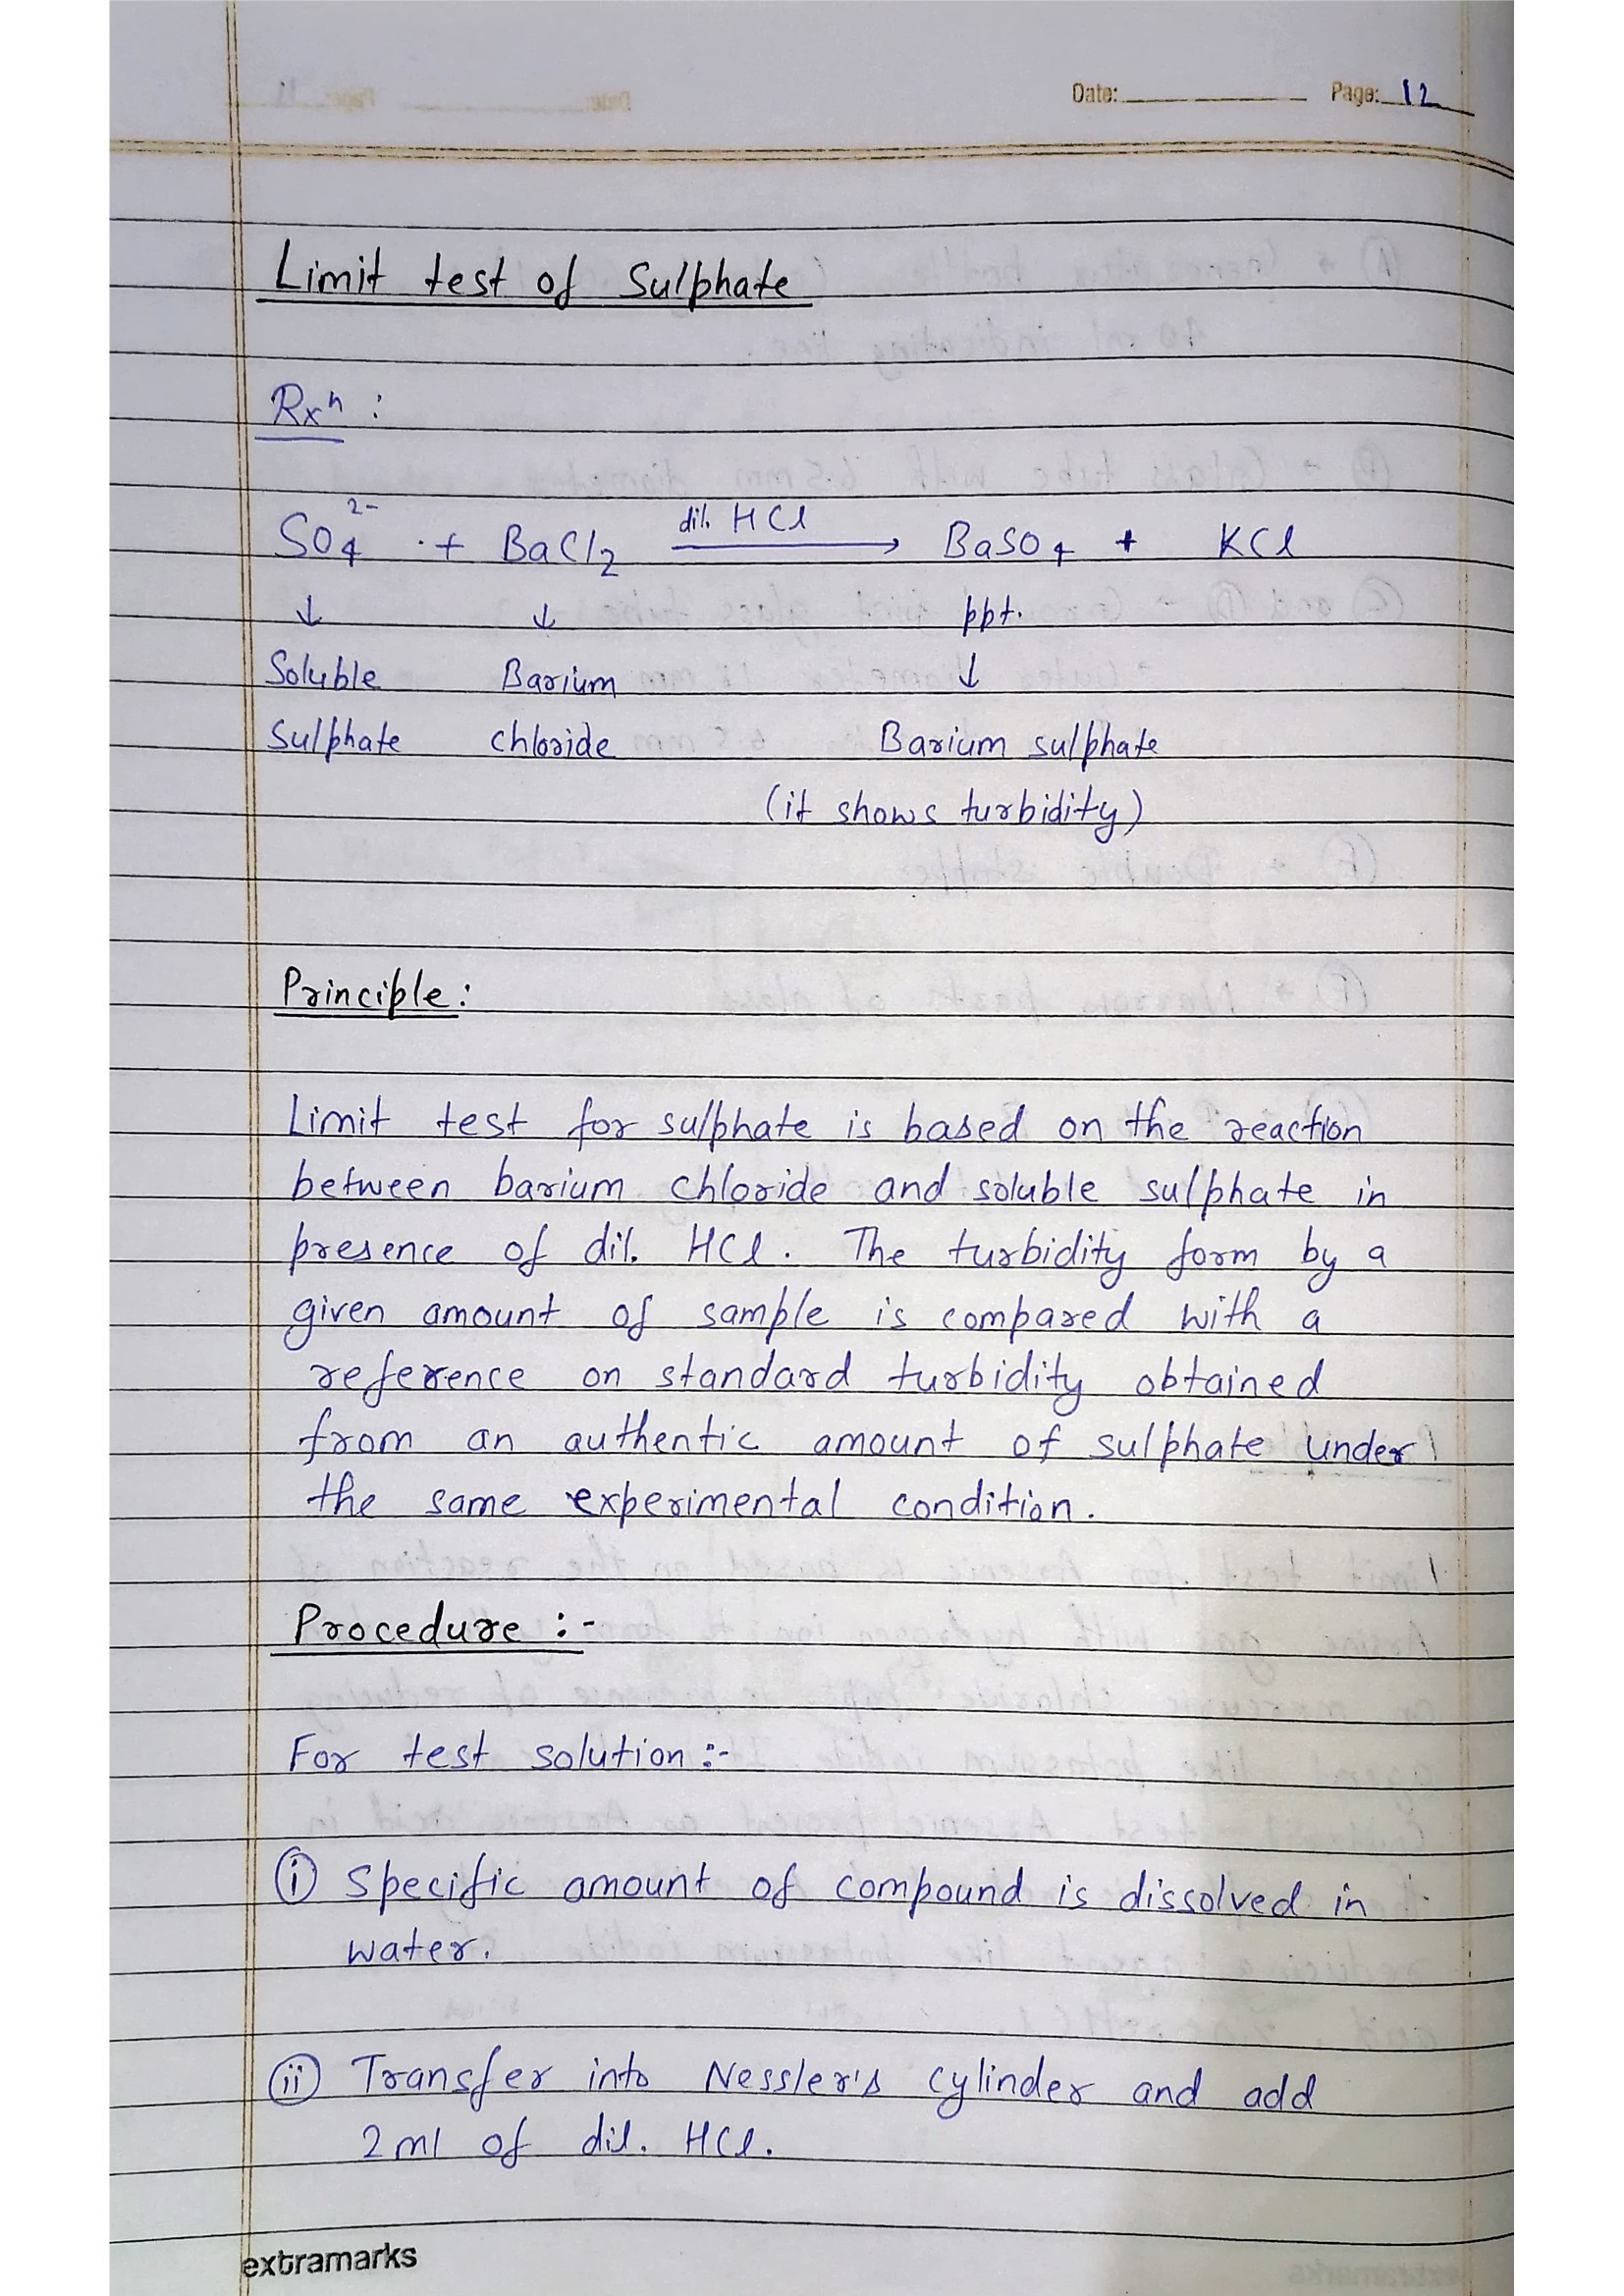 Date: Page: 12
Limit test of Sulphate
Rxⁿ :
SO₄²⁻ + BaCl₂ dil. HCl → BaSO₄ + KCl
↓ ↓ ppt.
Soluble Barium ↓
Sulphate chloride Barium sulphate
(it shows turbidity)
Principle:
Limit test for sulphate is based on the reaction
between barium chloride and soluble sulphate in
presence of dil. HCl. The turbidity form by a
given amount of sample is compared with a
reference on standard turbidity obtained
from an authentic amount of sulphate under
the same experimental condition.
Procedure :-
For test solution :-
(i) Specific amount of compound is dissolved in
water.
(ii) Transfer into Nessler's cylinder and add
2 ml of dil. HCl.
extramarks